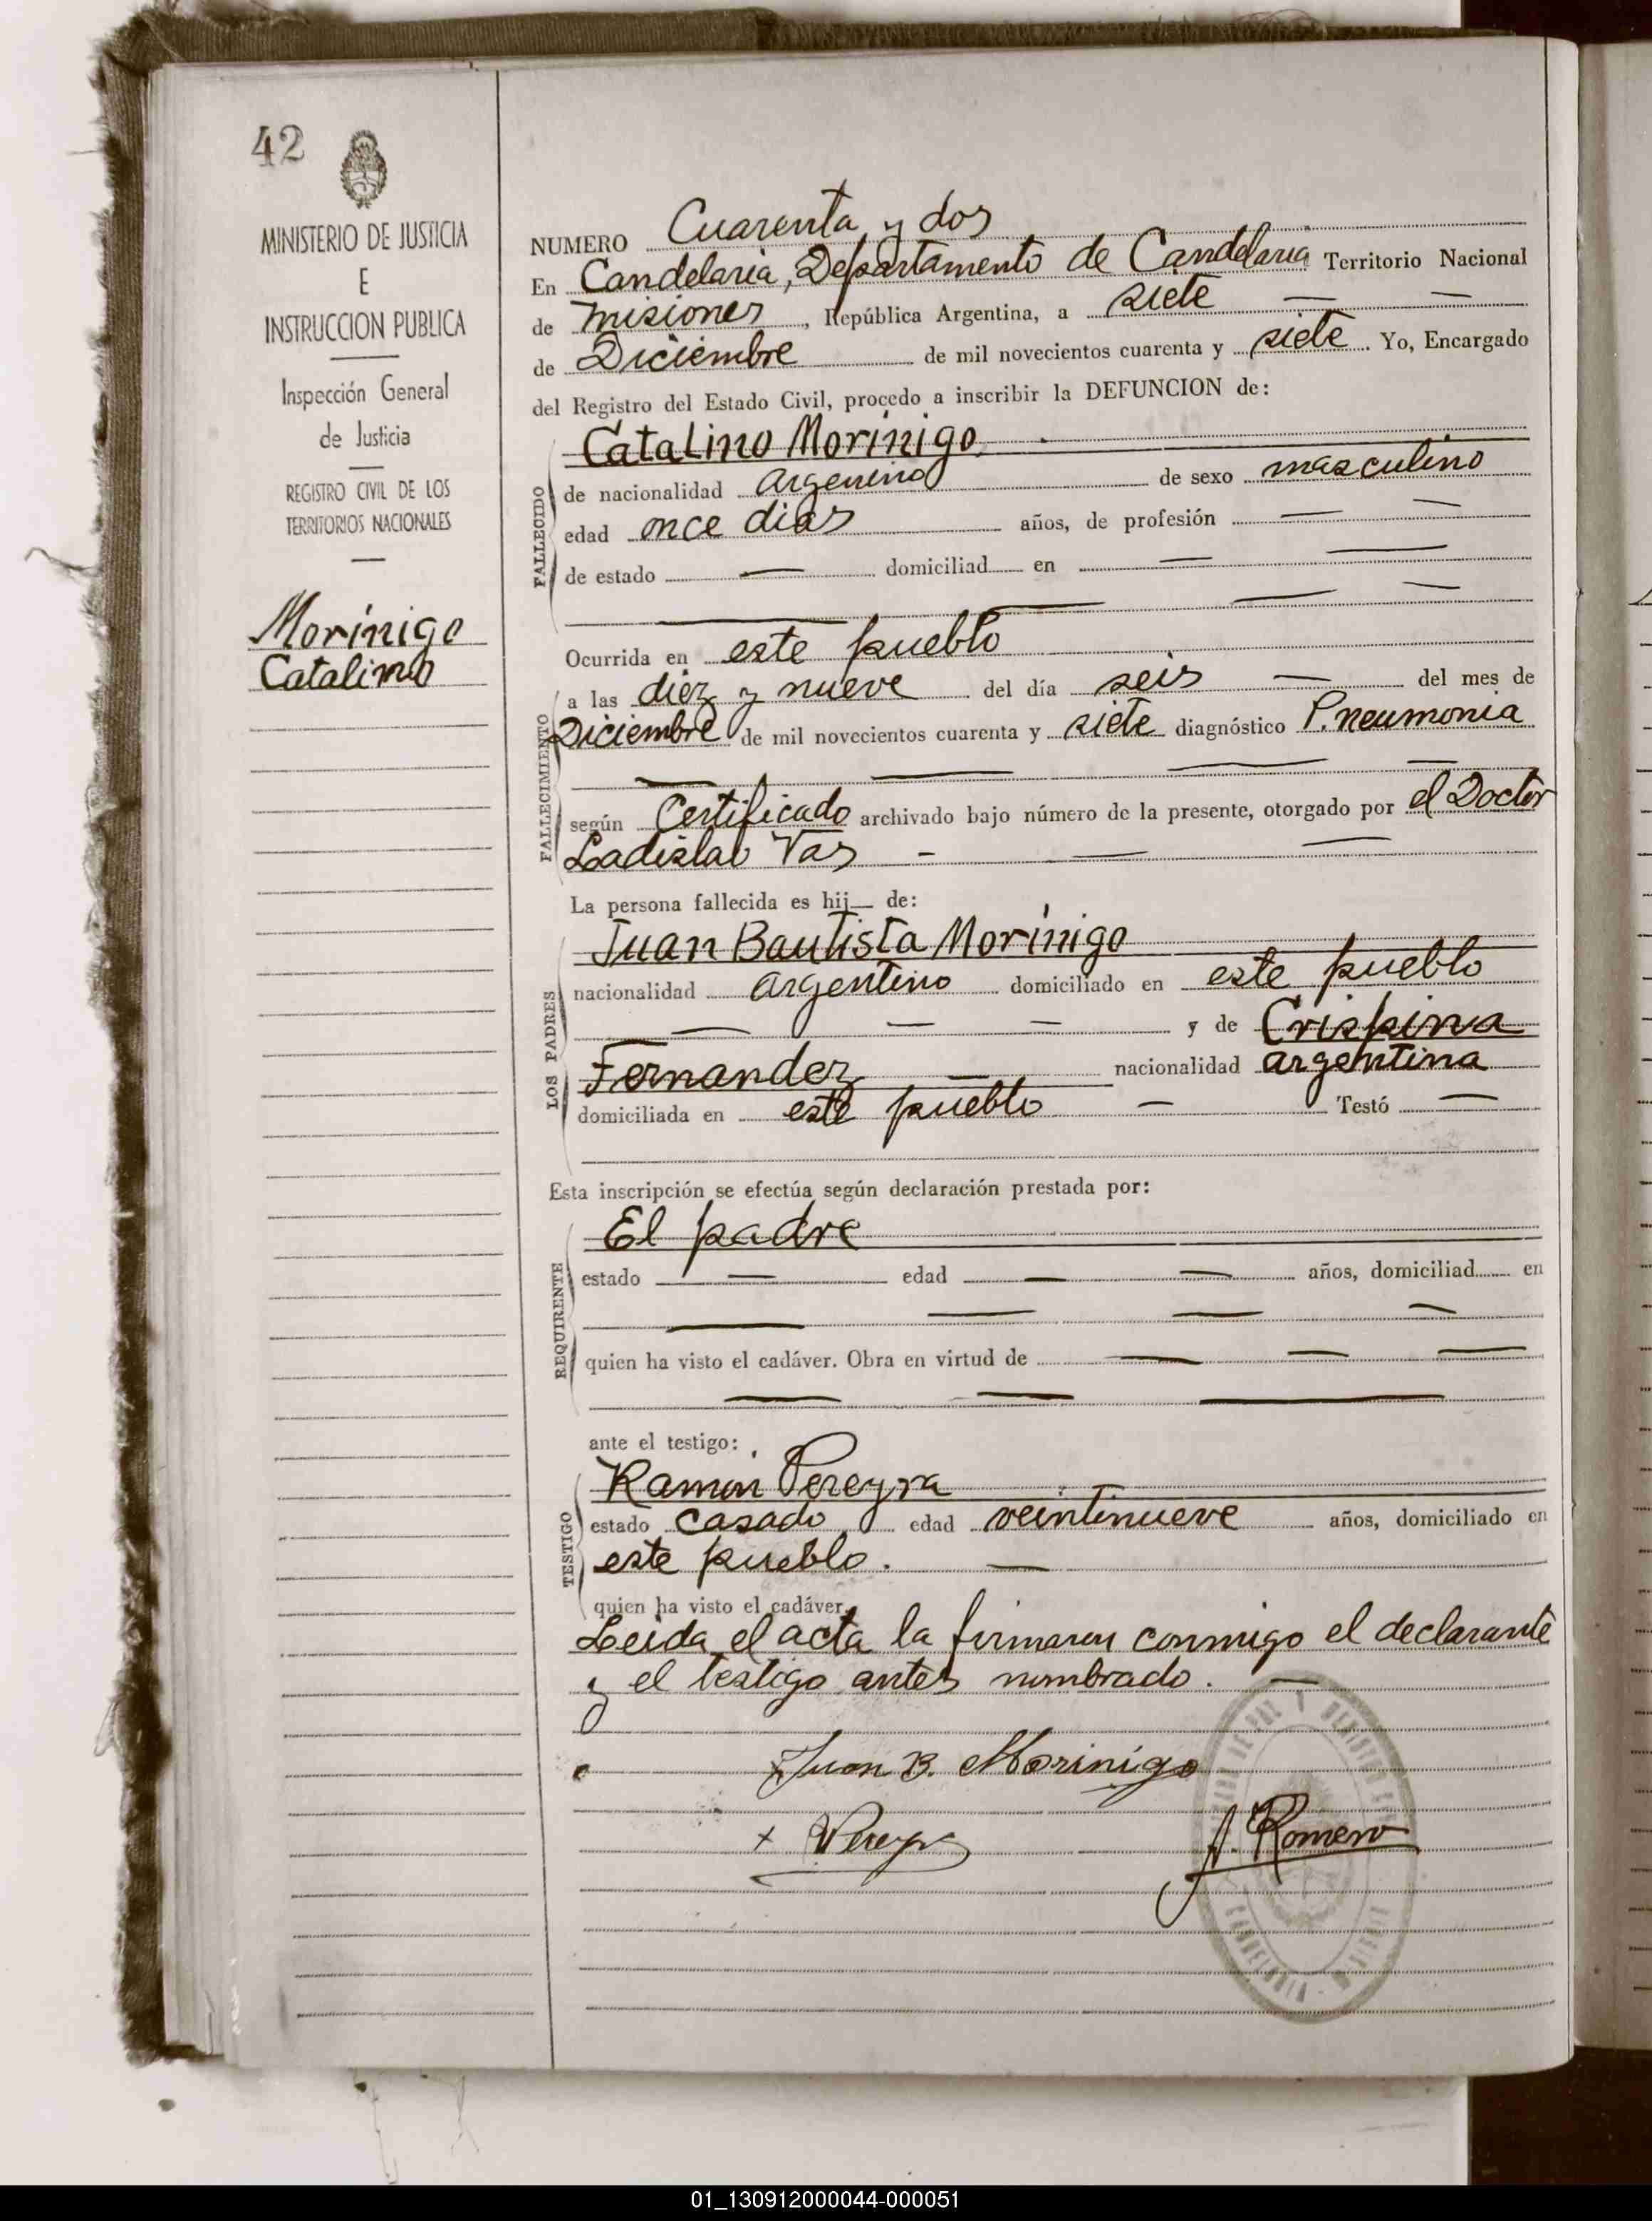 42
MINISTERIO DE JUSTICIA
E
INSTRUCCION PUBLICA
Inspección General
de Justicia
REGISTRO CIVIL DE LOS
TERRITORIOS NACIONALES
Morínigo
Catalino
NUMERO Cuarenta y dos
En Candelaria, Departamento de Candelaria Territorio Nacional
de Misiones, República Argentina, a siete
de Diciembre de mil novecientos cuarenta y siete. Yo, Encargado
del Registro del Estado Civil, procedo a inscribir la DEFUNCION de:
FALLECIDO
Catalino Morínigo
de nacionalidad argentino de sexo masculino
edad once dias años, de profesión —
de estado — domiciliad en —
FALLECIMIENTO
Ocurrida en este pueblo
a las diez y nueve del día seis — del mes de
Diciembre de mil novecientos cuarenta y siete diagnóstico P.neumonia
según Certificado archivado bajo número de la presente, otorgado por el Doctor
Ladislao Vas —
La persona fallecida es hij— de:
LOS PADRES
Juan Bautista Morínigo
nacionalidad argentino domiciliado en este pueblo
— y de Crispina
Fernandez — nacionalidad argentina
domiciliada en este pueblo — Testó —
Esta inscripción se efectúa según declaración prestada por:
REQUIRENTE
El padre
estado — edad — años, domiciliad en
quien ha visto el cadáver. Obra en virtud de —
ante el testigo:
TESTIGO
Ramón Pereyra
estado casado edad veintinueve años, domiciliado en
este pueblo. —
quien ha visto el cadáver.
Leida el acta la firmaron conmigo el declarante
y el testigo antes nombrado. —
Juan B. Morinigo
x Pereyra
A. Romero
01_130912000044-000051